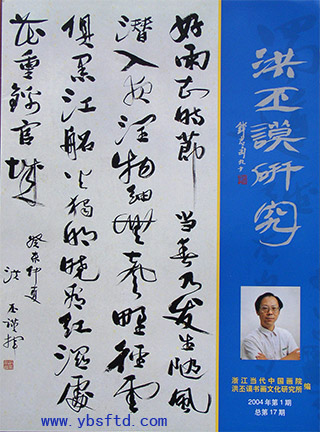 好雨知時節當春乃发生随風
潜入夜润物細無聲野径雲
俱黑江船火独明晓看红湿處
花重錦官城
癸未仲夏
洪丕谟
洪丕謨研究
浙江当代中国画院
洪丕谟书画文化研究所 编
2004年第1期
总第17期
www.ybsftd.com